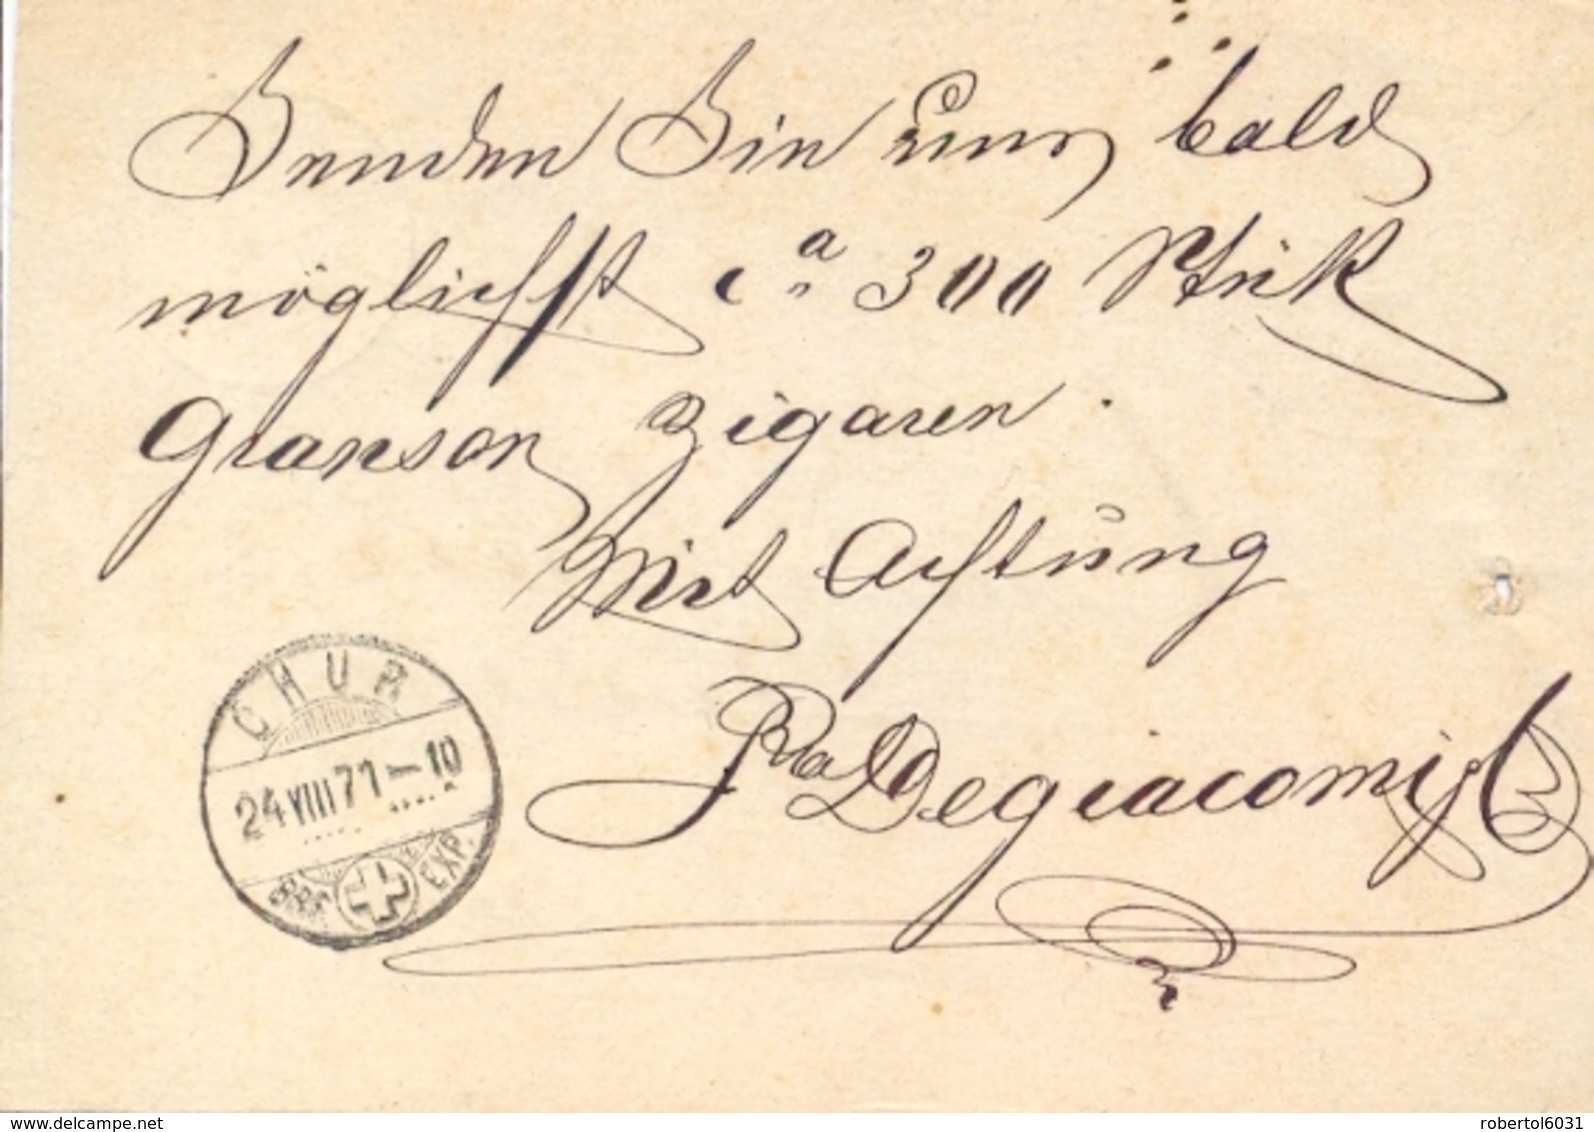 Senden Sie uns bald
möglichst ca 300 Stük
Granson Zigaren.
Mit Achtung
Degiacomi
CHUR
24 VIII 71-10
EXP.
www.delcampe.net
robertol6031